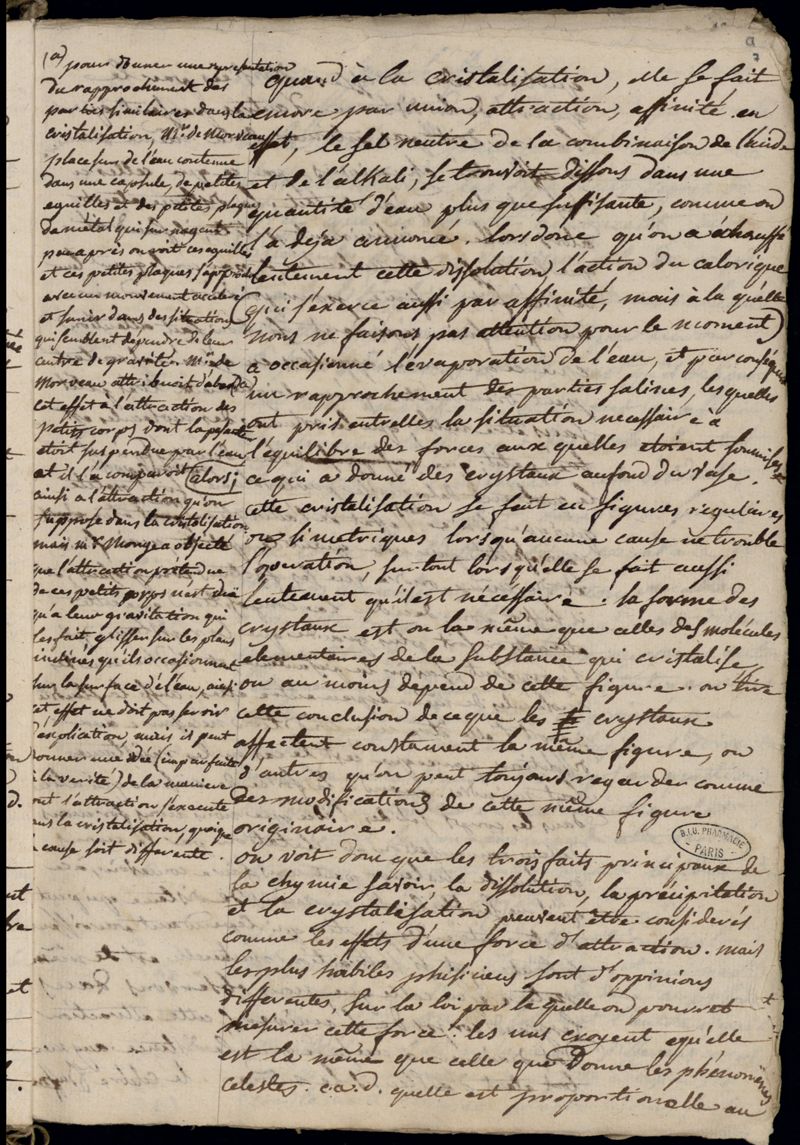 quand à la cristalisation, elle se fait
encore par union, attraction, affinité. en
effet, le sel neutre de la combinaison de l'acide
et de l'alkali, se trouvoit dissous dans une
quantité d'eau plus que suffisante, comme on
l'a deja annoncé. lorsdonc qu'on a échauffé
lentement cette dissolution l'action du calorique
(qui s'exerce aussi par affinité, mais à la quelle
nous ne faisons pas attention pour le moment)
a occasionné l'évaporation de l'eau, et par conséquent
un rapprochement des parties salines, les quelles
ont pris entrelles la situation necessaire à
l'équilibre des forces aux quelles etoient soumises
ce qui a donné des crystaux au fond du vase.
cette cristalisation se fait en figures regulieres
ou simetriques lorsqu'aucune cause ne trouble
l'operation, surtout lorsqu'elle se fait aussi
lentement qu'il est nécessaire. la forme des
crystaux est ou la même que celles des molécules
elementaires de la substance qui cristalise,
ou au moins dépend de cette figure. on tire
cette conclusion de ce que les crystaux
affectent constament la même figure, ou
d'autres qu'on peut toujours regarder comme
des modifications de cette même figure
originaire.
on voit donc que les trois faits principaux de
la chymie savoir, la dissolution, la précipitation
et la crystalisation peuvent être considerés
comme les effets d'une force d'attraction. mais
les plus habiles phisiciens sont d'oppinions
differentes, sur la loi par laquelle on pourroit
mesurer cette force: les uns croyent qu'elle
est la même que celle que donne les phénomènes
celestes. c.a.d. quelle est proportionelle au
(a) pour donner une representation
du rapprochement des
parties similaires dans la
cristalisation, Mr. de Morveau
place sur de l'eau contenue
dans une capsule, de petites
eguilles et des petites plaques
de métal qui surnagent
peu après on voit ces eguilles
et ces petites plaques s'approcher
avec un mouvement acceleré
et s'unir dans des situations
qui semblent dépendre de leur
centre de gravité. Mr. de
Morveau attribuoit d'abord (a)
cet effet à l'attraction des
petits corps dont la pesanteur
etoit suspendue par l'eau
et il la comparoit alors;
ainsi a l'attraction qu'on
suppose dans la cristalisation
mais mr. Monge a objecté
que l'attraction prétendue
de ces petits corps n'est due
qu'a leur gravitation qui
les fait glisser sur les plans
inclinés qu'ils occasionnent
sur la surface de l'eau, ainsi
cet effet ne doit pas servir
d'explication, mais il peut
donner une idée (imparfaite
à la verité) de la maniere
dont l'attraction s'execute
dans la cristalisation, quoique
la cause soit differente.
B.I.U. PHARMACIE
PARIS